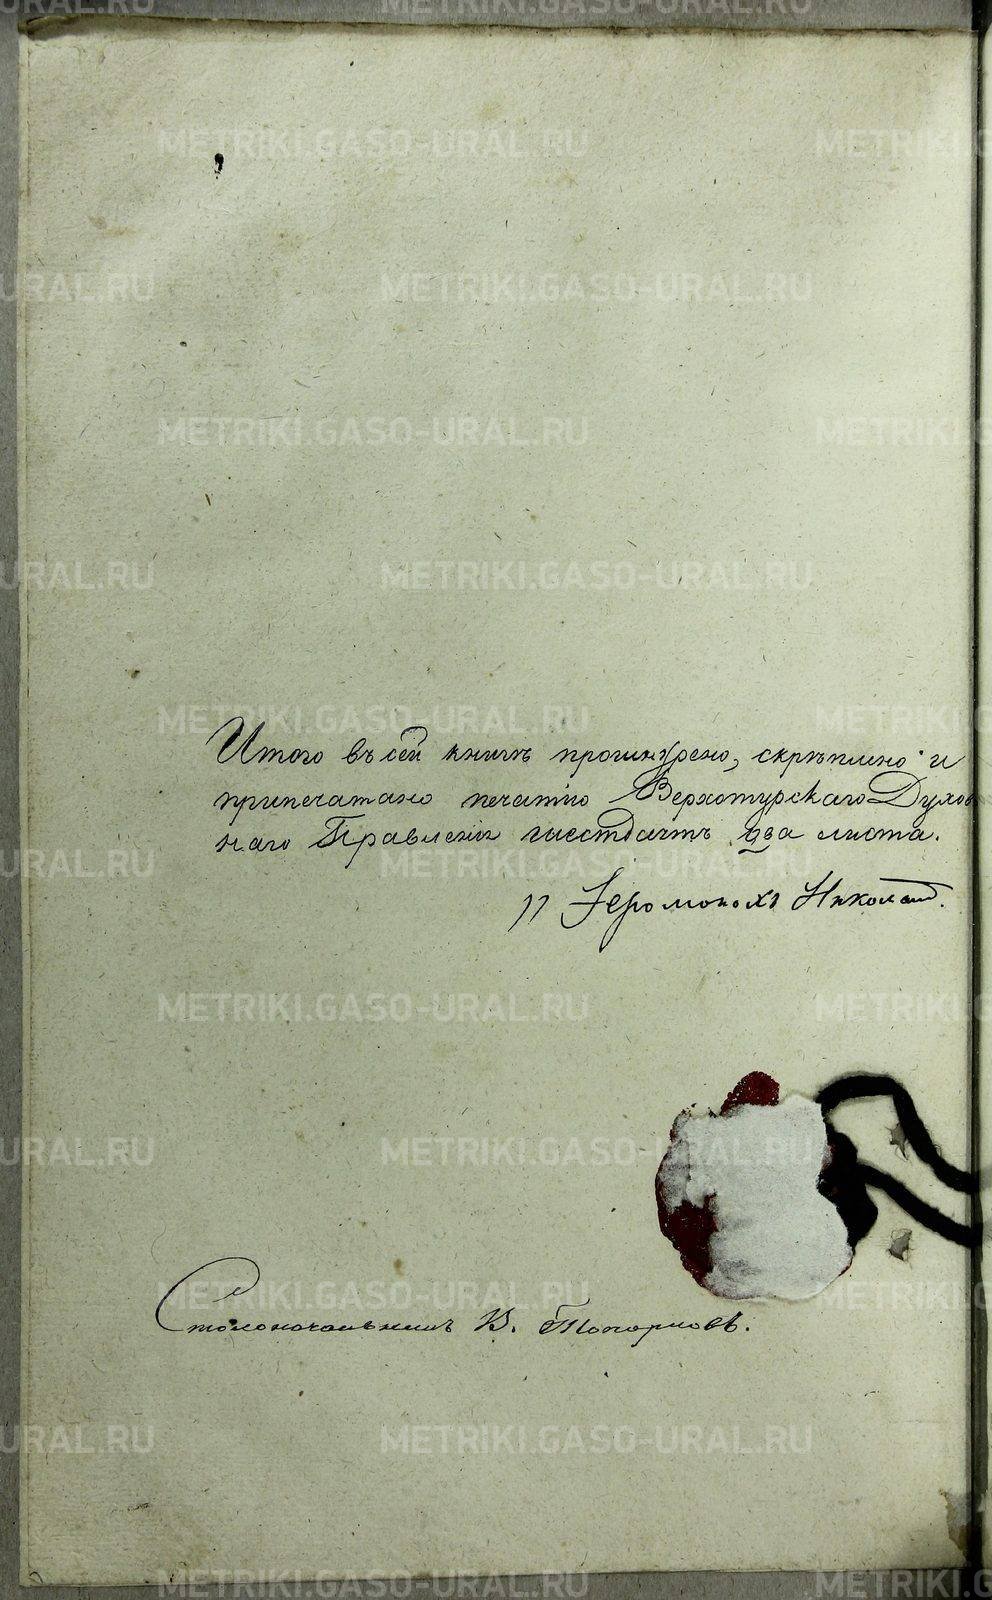 Итого въ сей книгѣ прошнурено, скрѣплено и
припечатано печатію Верхотурскаго Духов
наго Правленія шестьдесятъ два листа.
Іеромонахъ Николай.
Столоначальникъ В. Топорковъ.
METRIKI.GASO-URAL.RU